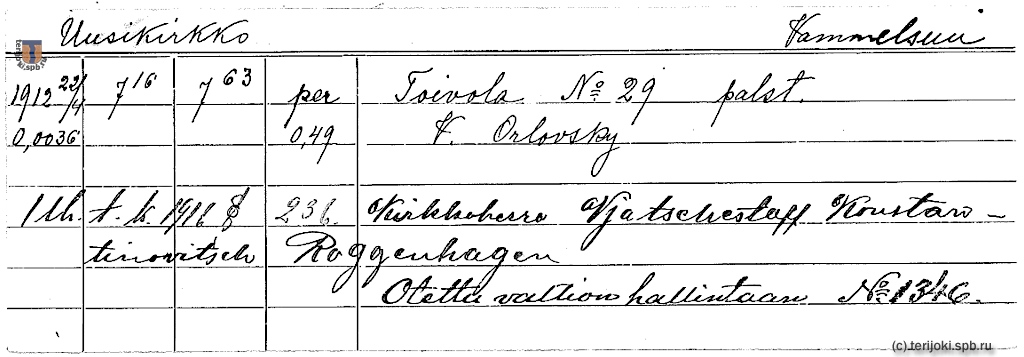 Uusikirkko Vammelsuu
1912 22/4 7 16 7 63 per Toivola № 29 palst.
0,0036 0,49 V. Orlovsky
1 lk. t. k. 1916 § 236. Kirkkoherra Vjätscheslaff Konstan-
tinovitsch Roggenhagen
Otettu valtion hallintaan № 1346.
terijoki.spb.ru
(c).terijoki.spb.ru